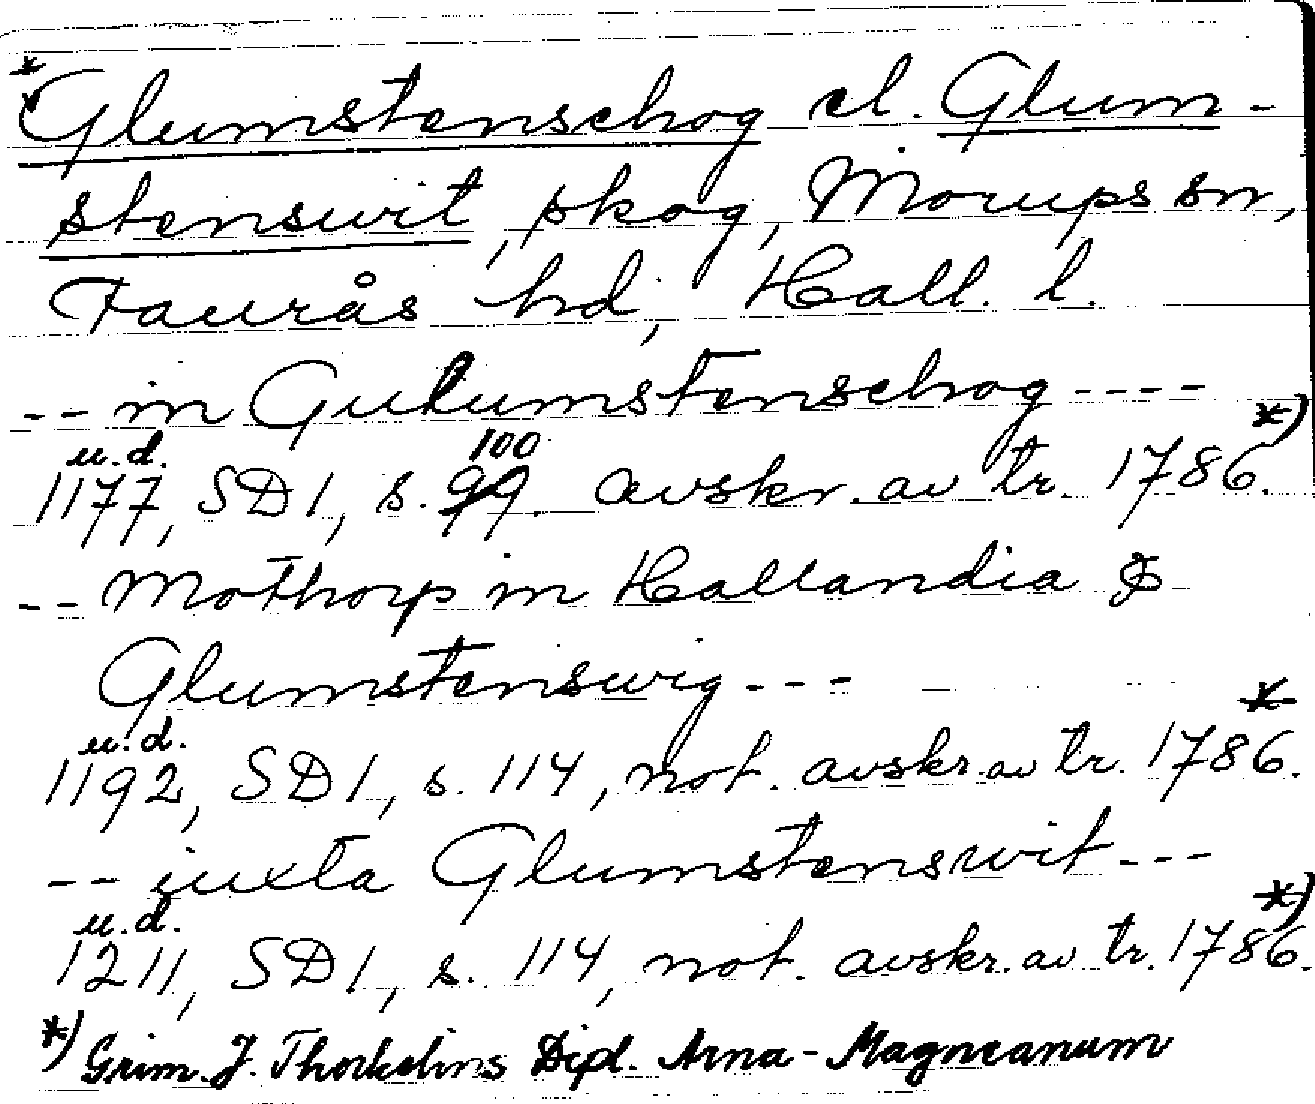 *Glumstenschog el. Glum-
stenswit, skog, Morups sn,
Faurås hd, Hall. l.
-- in Gulumstenschog ----
u.d. 100 *)
1177, SD 1, s. 99. avskr. av tr. 1786.
-- Mothorp in Hallandia &
Glumstenswig ---
u.d. *
1192, SD 1, s. 114, not. avskr. av tr. 1786.
-- iuxta Glumstenswit ---
u.d. *)
1211, SD 1, s. 114, not. avskr. av tr. 1786.
*) Grim. J. Thorkelins Dipl. Arna-Magneanum